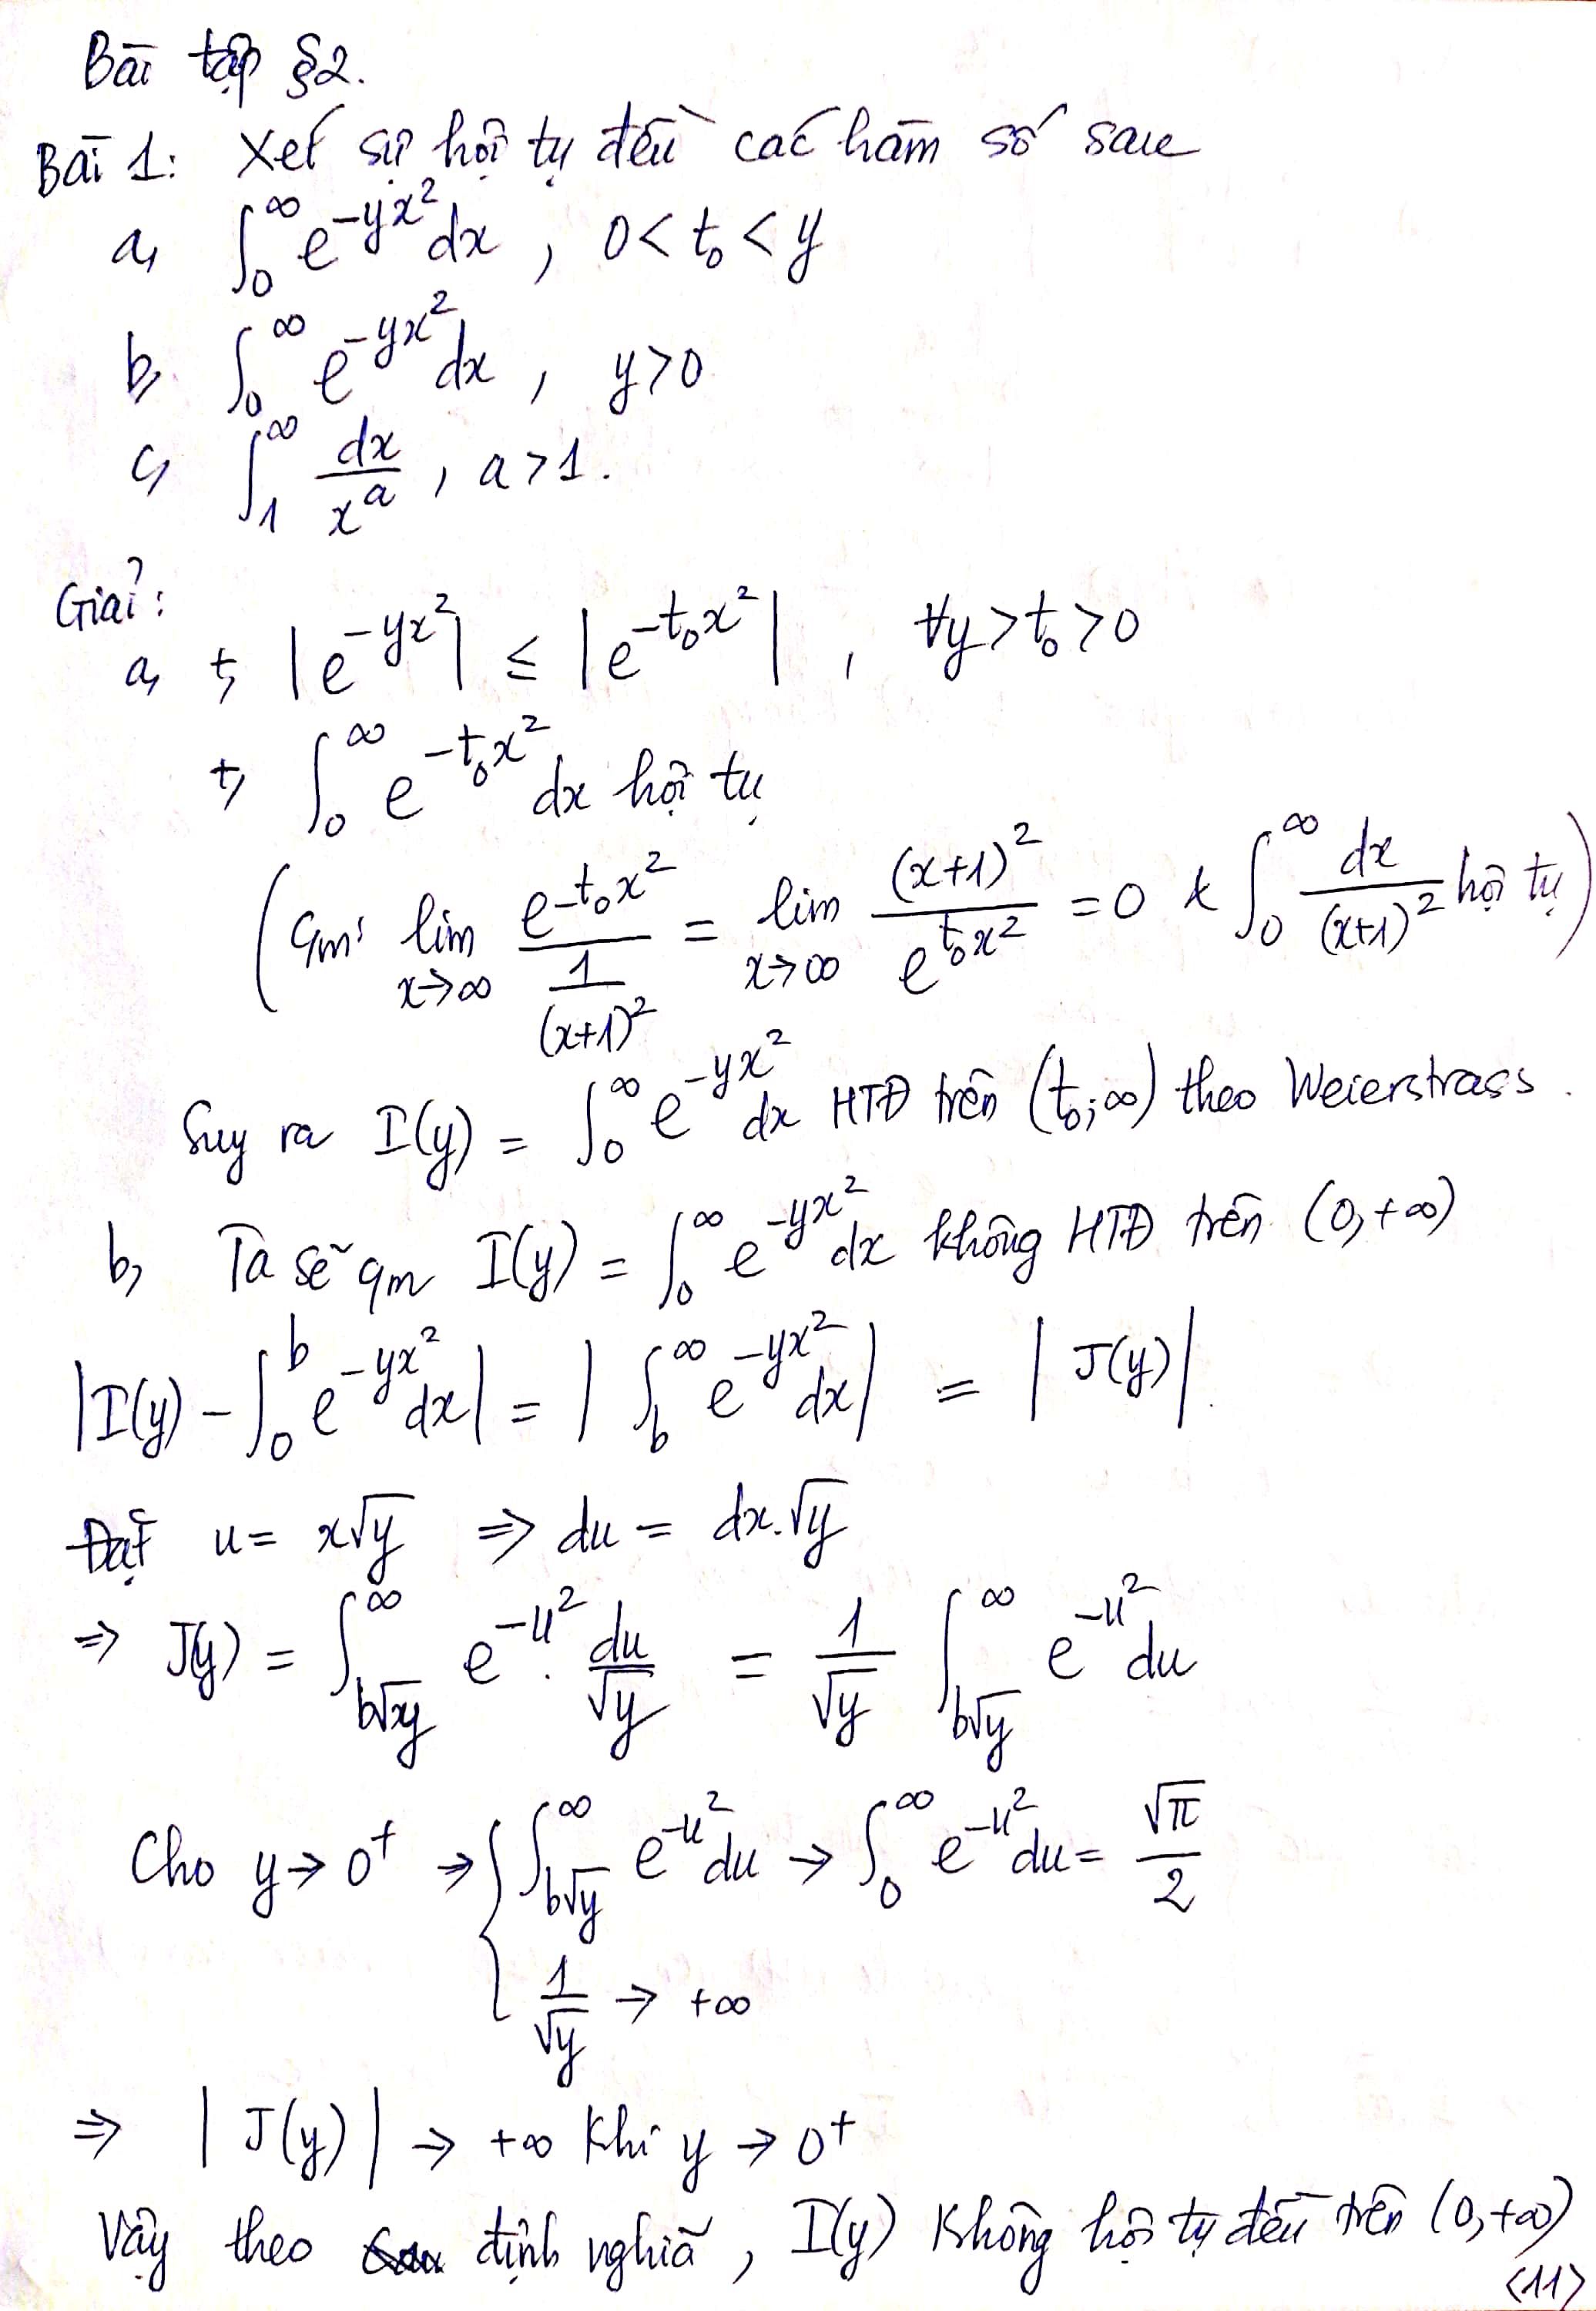 Bài tập §2.
Bài 1: Xét sự hội tụ đều các hàm số sau
a, ∫₀^∞ e^{-yx²} dx , 0 < t₀ < y
b, ∫₀^∞ e^{-yx²} dx , y > 0
c, ∫₁^∞ dx/x^a , a > 1.
Giải:
a, +, |e^{-yx²}| ≤ |e^{-t₀x²}| , ∀y > t₀ > 0
+, ∫₀^∞ e^{-t₀x²} dx hội tụ
(cm: lim_{x→∞} e^{-t₀x²} / (1/(x+1)²) = lim_{x→∞} (x+1)² / e^{t₀x²} = 0 & ∫₀^∞ dx/(x+1)² hội tụ)
Suy ra I(y) = ∫₀^∞ e^{-yx²} dx HTĐ trên (t₀; ∞) theo Weierstrass.
b, Ta sẽ cm I(y) = ∫₀^∞ e^{-yx²} dx không HTĐ trên (0, +∞)
|I(y) - ∫₀^b e^{-yx²} dx| = |∫_b^∞ e^{-yx²} dx| = |J(y)|.
Đặt u = x√y ⇒ du = dx.√y
⇒ J(y) = ∫_{b√y}^∞ e^{-u²}. du/√y = 1/√y ∫_{b√y}^∞ e^{-u²} du
Cho y → 0⁺ ⇒ { ∫_{b√y}^∞ e^{-u²} du → ∫₀^∞ e^{-u²} du = √π/2
1/√y → +∞
⇒ |J(y)| → +∞ khi y → 0⁺
Vậy theo định nghĩa, I(y) không hội tụ đều trên (0, +∞)
<11>